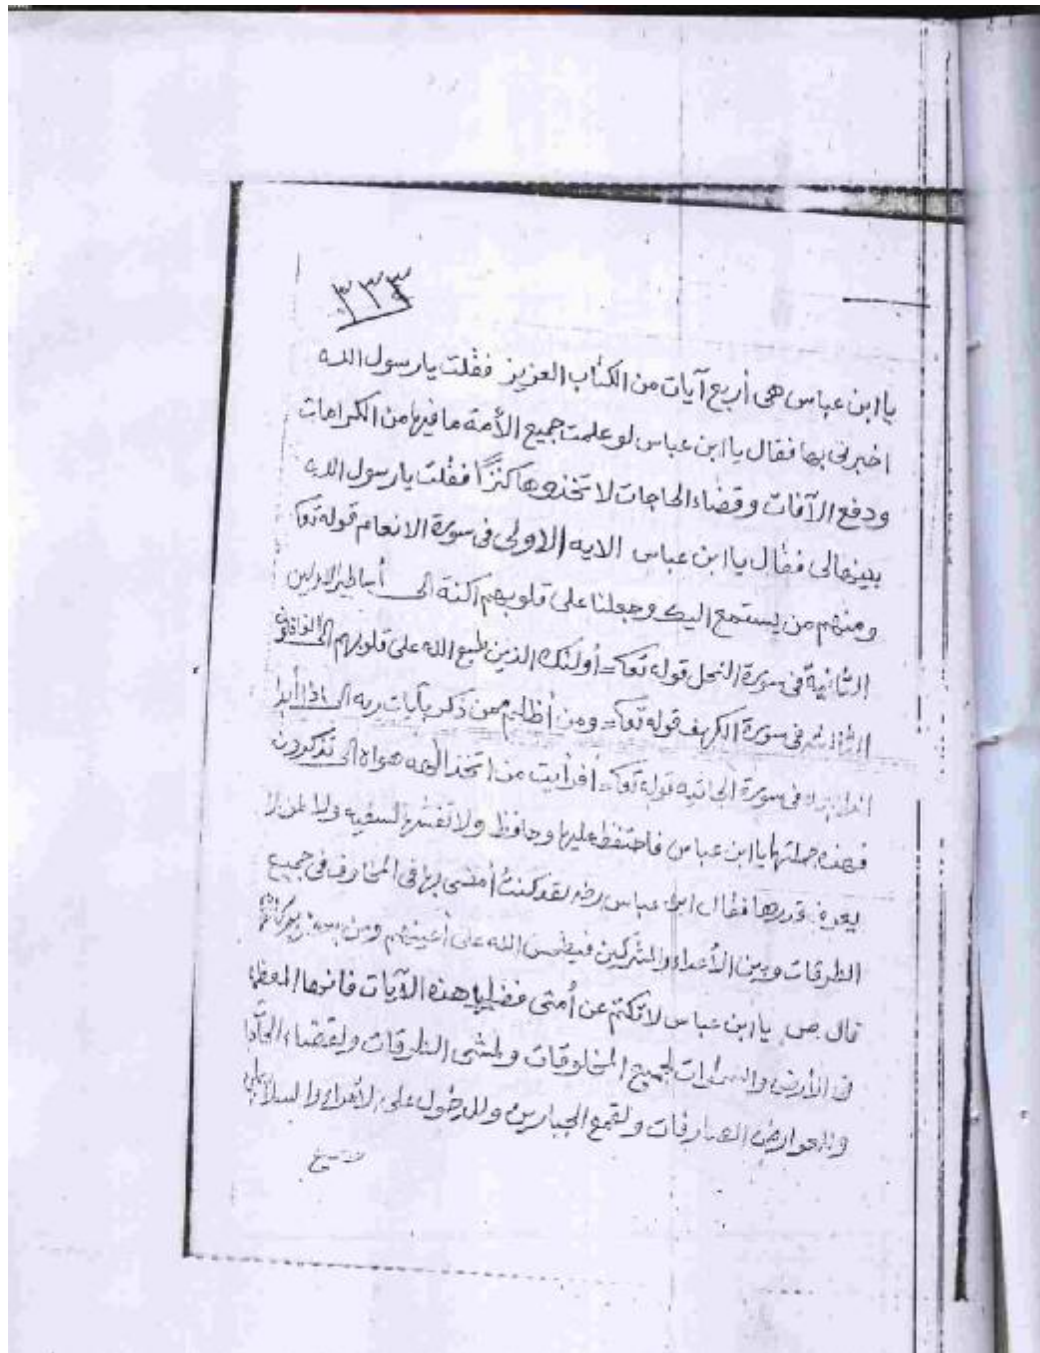 ٣٣٣
يا ابن عباس هي أربع آيات من الكتاب العزيز فقلت يا رسول الله
اخبرني بها فقال يا ابن عباس لو علمت جميع الأمة ما فيها من الكرامات
ودفع الآفات وقضاء الحاجات لاتخذوها كنزًا فقلت يا رسول الله
بينها لي فقال يا ابن عباس الايه الاولى في سورة الانعام قوله تعا
ومنهم من يستمع اليك وجعلنا على قلوبهم اكنة الى أساطير الاولين
الثانية في سورة النحل قوله تعا أولئك الذين طبع الله على قلوبهم الى الغافلون
الثالثه في سورة الكهف قوله تعا ومن أظلم ممن ذكر بآيات ربه الى اذا أبدا
في سورة الجاثيه قوله تعا أفرأيت من اتخذ الهه هواه الى تذكرون
فهذه جملتها يا ابن عباس فاحتفظ عليها وحافظ ولا تفشها لسفيه ولا لمن لا
يعرف قدرها فقال ابن عباس رضه لقد كنت أمشي بها في المخاوف في جميع
الطرقات وبين الأعداء والمشركين فيطمس الله على أعينهم ومن
قال ص يا ابن عباس لا تكتم عن أمتي فضل هذه الآيات فانها
في الأرض والسموات لجميع المخلوقات ولمشي الطرقات ولقضاء
والعوارض ولقمع الجبارين وللدخول على